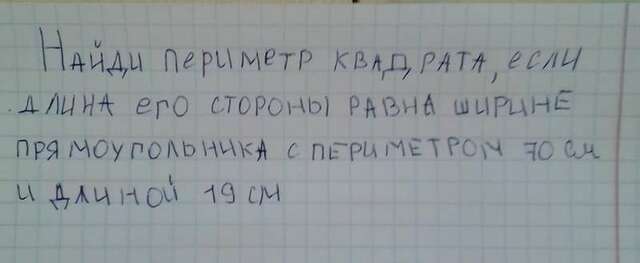 Найди периметр квадрата, если
длина его стороны равна ширине
прямоугольника с периметром 70 см
и длиной 19 см